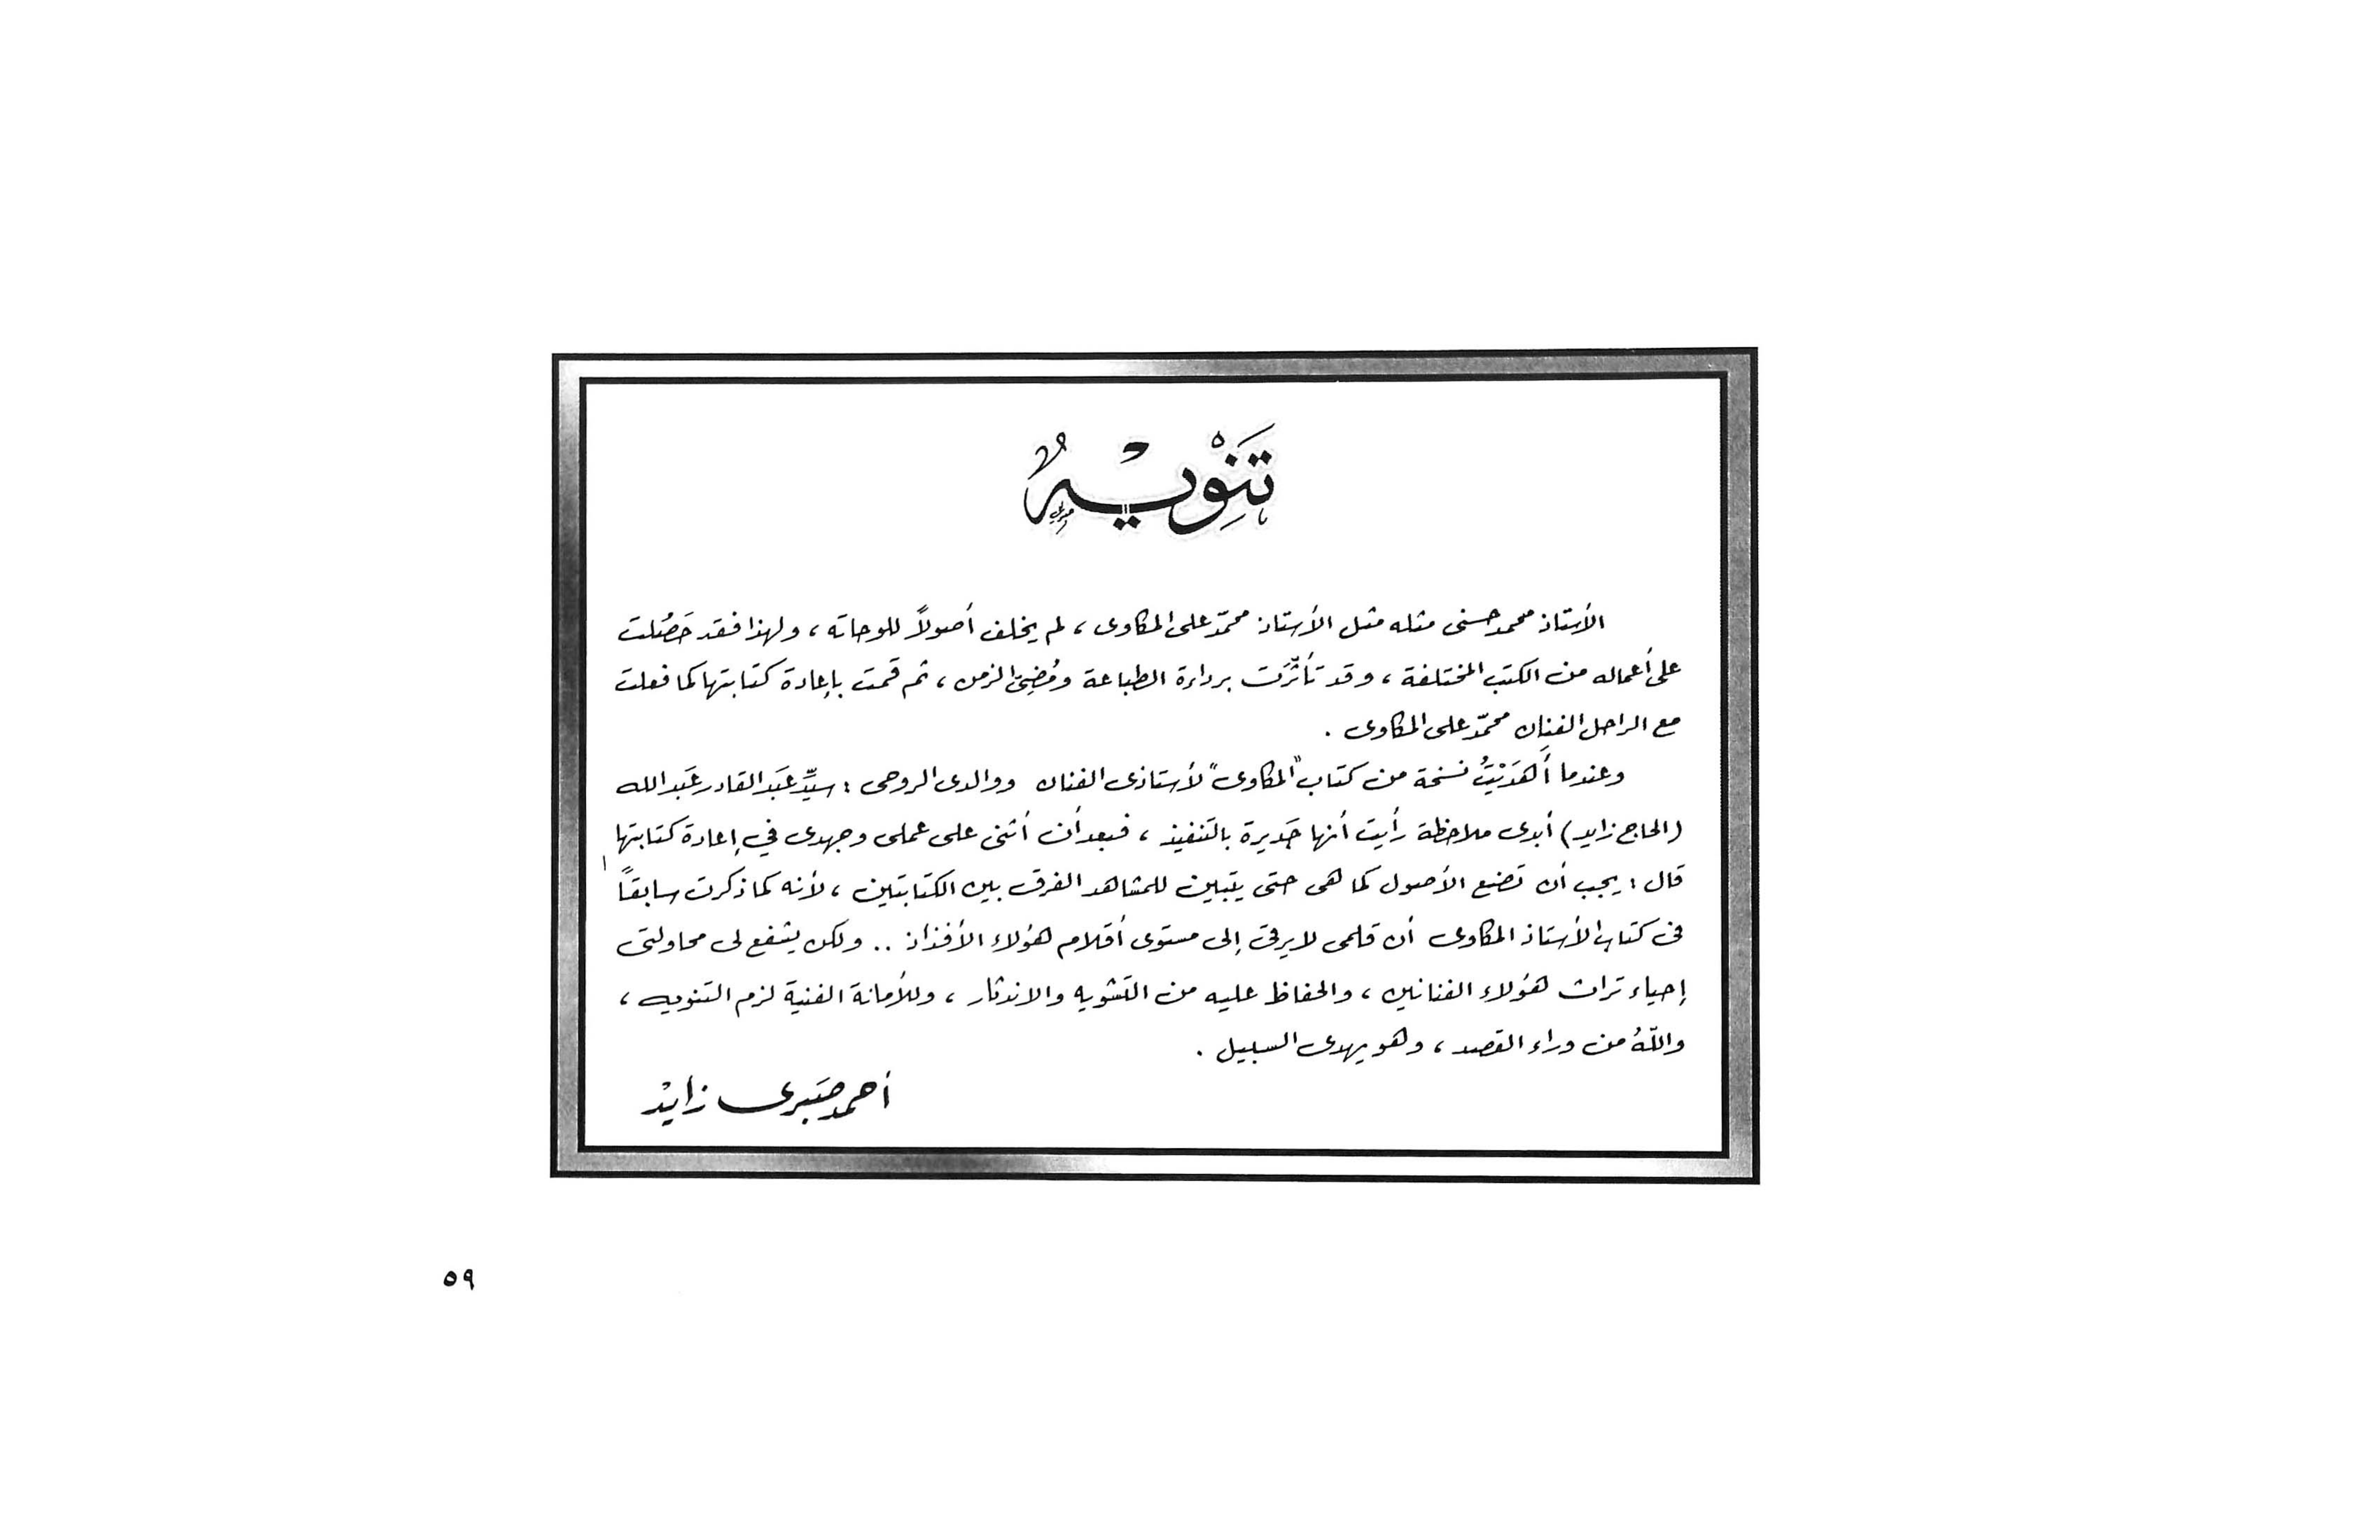 تَنْوِيْهُ
الأستاذ محمد حسنى مثله مثل الأستاذ محمّد على المكاوى ، لم يخلف أصولاً للوحاته ، ولهذا فقد حَصُلت
على أعماله من الكتب المختلفة ، وقد تأثّرَت برداءة الطباعة ومُضِىّ الزمن ، ثم قمت بإعادة كتابتها كما فعلت
مع الراحل الفنان محمّد على المكاوى .
وعندما أَهدَيْتُ نسخة من كتاب "المكاوى" لأستاذى الفنان ووالدى الروحى : سيِّد عَبَد القادر عَبَد الله
(الحاج زايد) أبدى ملاحظة رأيت أنها جَديرة بالتنفيذ ، فبعد أن أثنى على عملى وجهدى في إعادة كتابتها
قال : يجب أن تضع الأصول كما هى حتى يتبين للمشاهد الفرق بين الكتابتين ، لأنه كما ذكرت سابقاً
فى كتاب الأستاذ المكاوى أن قلمى لا يرقى إلى مستوى أقلام هؤلاء الأفذاذ .. ولكن يشفع لى محاولتى
إحياء تراث هؤلاء الفنانين ، والحفاظ عليه من التشويه والاندثار ، وللأمانة الفنية لزم التنويه ،
واللهُ من وراء القصد ، وهو يهدى السبيل .
أحمد صَبرى زايد
٥٩